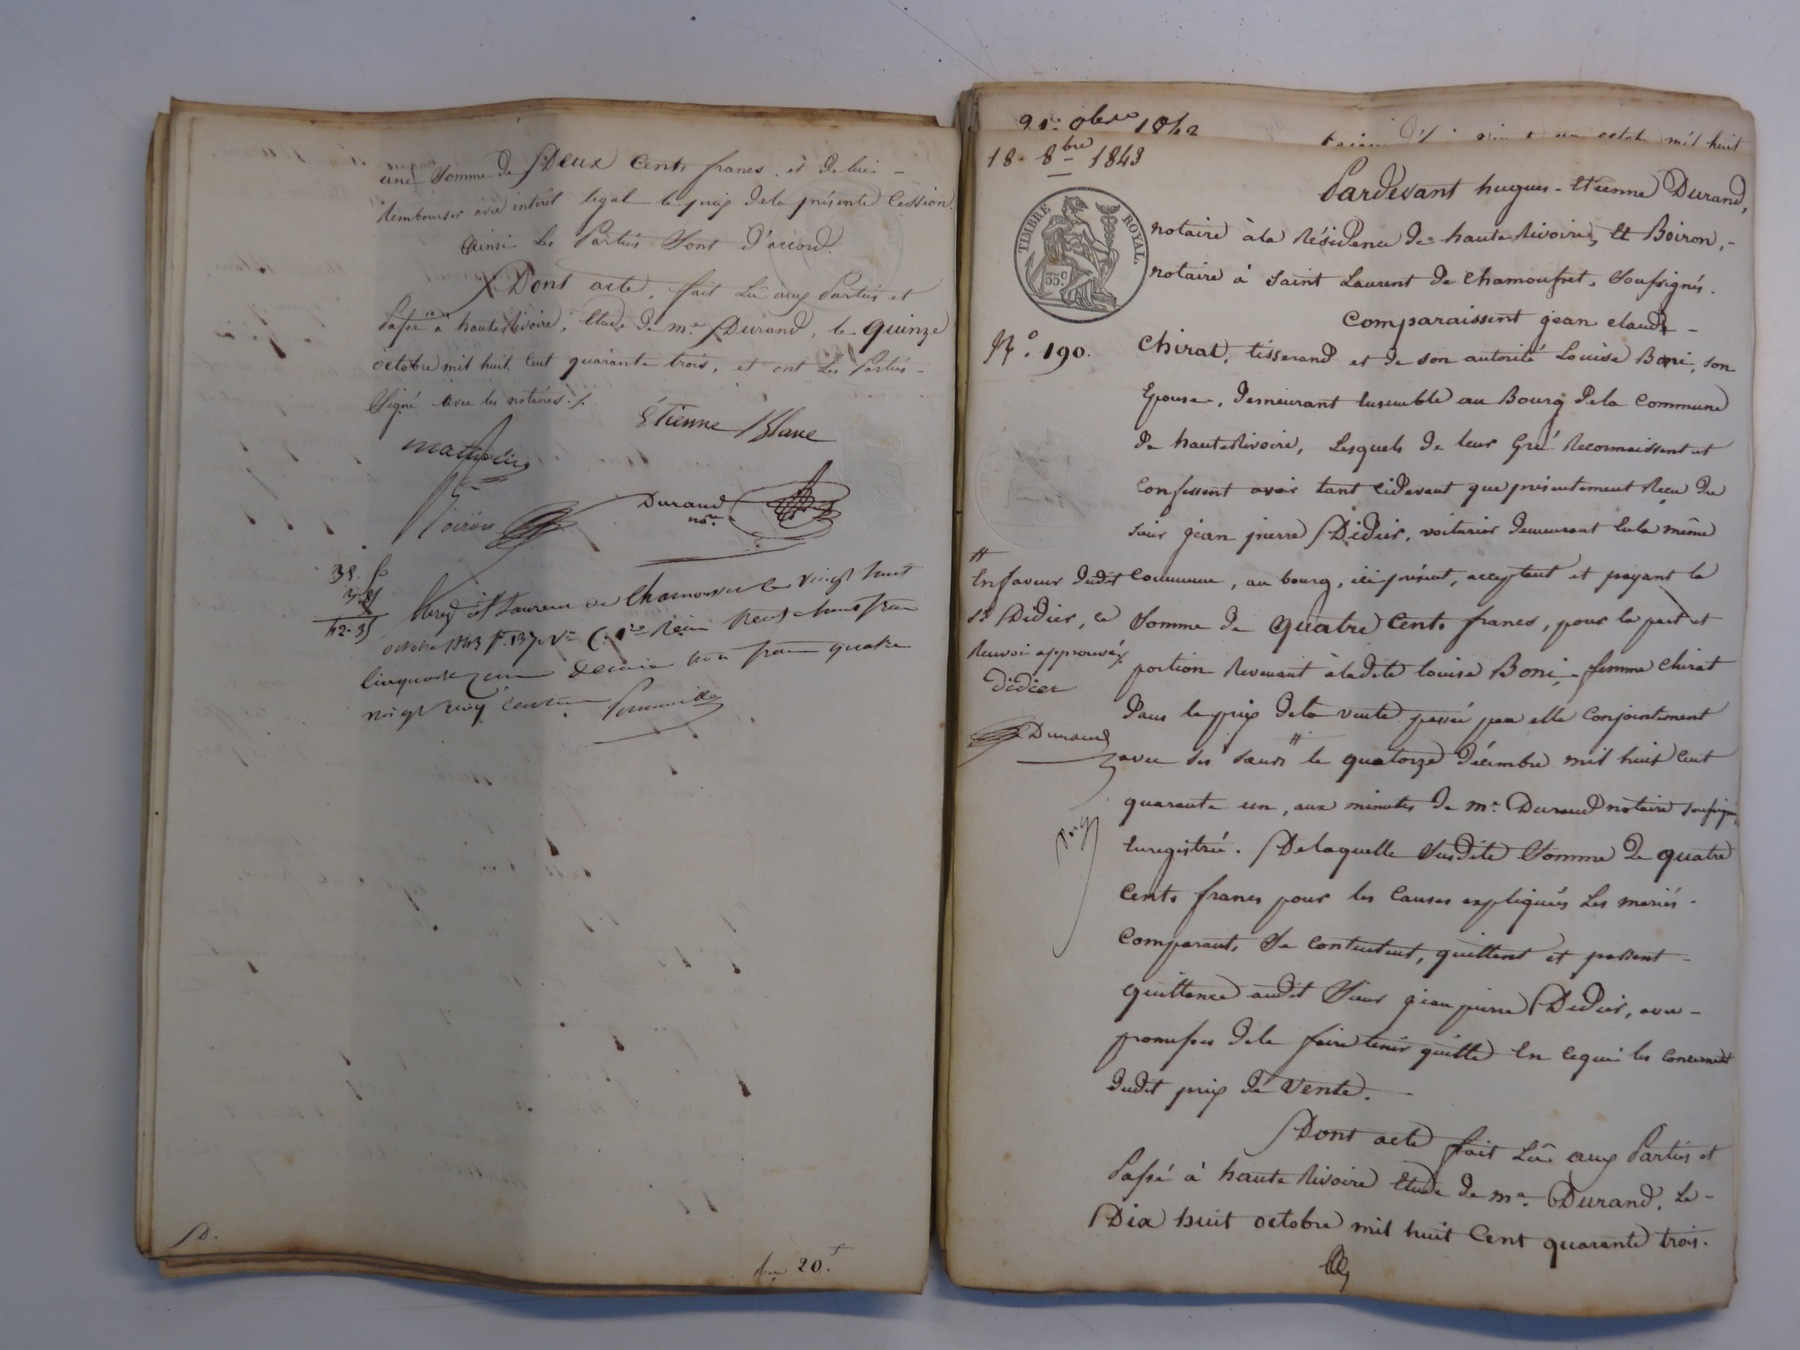 une Somme de Deux Cents francs, et de lui
Rembourser avec intérêt légal le prix de la présente Cession.
Ainsi Les Parties Sont d'accord.
Dont acte, fait Lû aux Parties et
Passé à hauterivoire, Etude de me Durand, le quinze
octobre mil huit Cent quarante trois, et ont Les Parties
Signé avec les notaires ./.
Étienne Blanc
Boiron
Durand
nre
Enreg. à St Laurent de Chamousset le vingt huit
octobre 1843 fo 137
Cinquante un décime trois francs quatre
vingt cinq centimes
D.
20.f
9bre 1842
octobre mil huit
18 8bre 1843
TIMBRE ROYAL.
35 c
No. 190.
Pardevant hugues-Etienne Durand,
notaire à la Résidence de haute Rivoire, Et Boiron,
notaire à Saint Laurent de Chamousset, Soussignés.
Comparaissent jean claude
Chirat, tisserand et de son autorité Louise Boni, son
Epouse, demeurant Ensemble au Bourg de la Commune
de hauterivoire, Lesquels de leur Gré Reconnaissent et
Confessent avoir tant cidevant que présentement Reçu du
sieur jean pierre Didier, voiturier demeurant En la même
Commune, au bourg, ici présent, acceptant et payant la
Somme de quatre Cents francs, pour la part et
portion Revenant à ladite louise Boni, femme Chirat
Dans le prix de la vente passée par elle Conjointement
avec ses sœurs # le quatorze décembre mil huit Cent
quarante un, aux minutes de me Durand notaire soussigné,
Enregistrée. De laquelle Susdite Somme de quatre
Cents francs pour les Causes expliquées Les mariés
Comparants Se contentent, quittent et passent
quittance audit Sieur jean pierre Didier, avec
promesse de le faire tenir quitte En cequi les concernent
dudit prix de Vente.
Dont acte fait Lû aux Parties et
Passé à haute Rivoire Etude de me Durand, Le
Dix huit octobre mil huit Cent quarante trois.
#
En faveur dudit
Sr Didier, ce
Renvoi approuvé
Didier
Durand